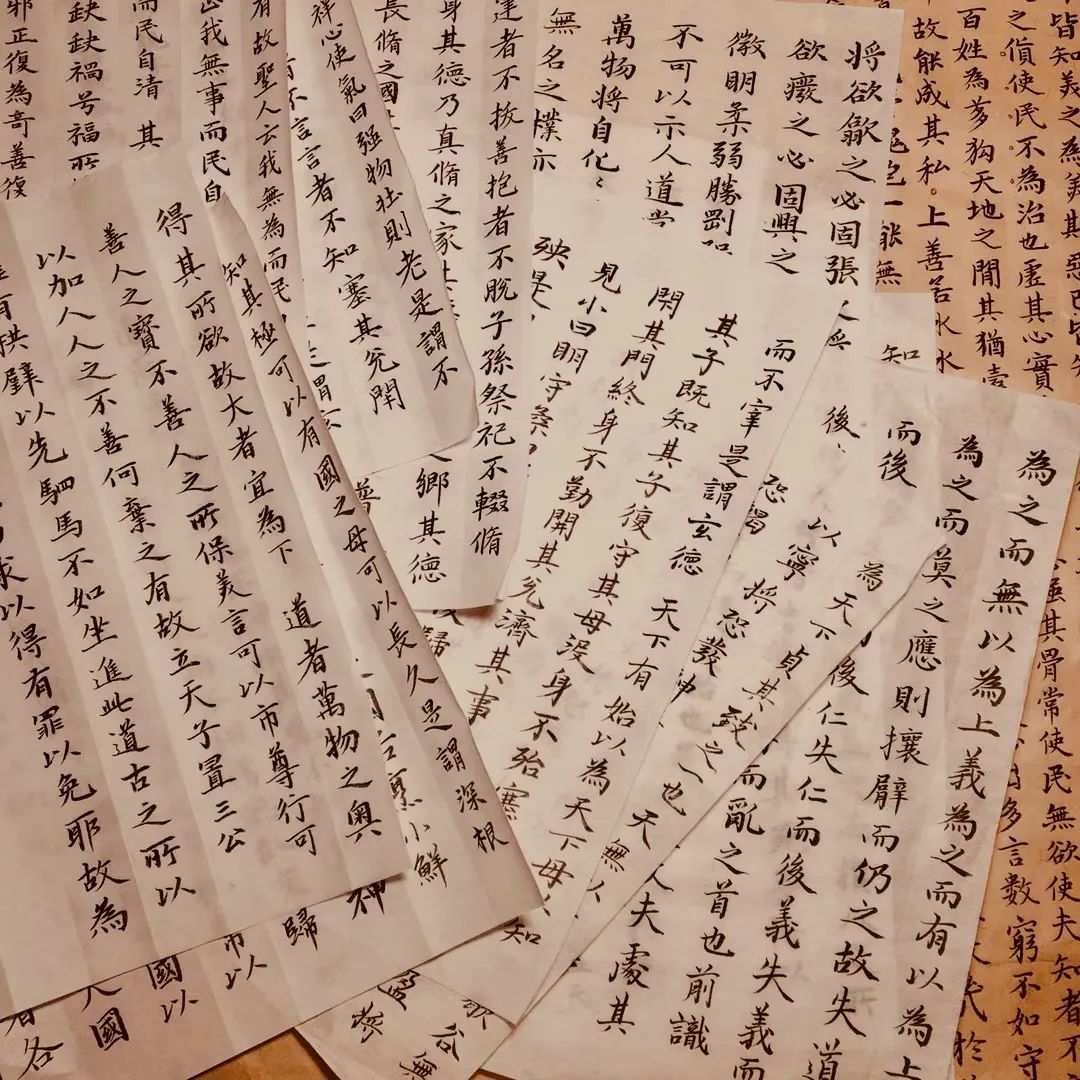 皆知美之為美其惡已皆知
之
使民不為治也虛其心實
其骨常使民無欲使夫知者不
百姓為芻狗天地之間其猶
多言數窮不如守
故能成其私。上善若水水
為之而無以為上義為之而有以為上
為之而莫之應則攘臂而仍之故失道
而後
後仁失仁而後義失義而
為
而亂之首也前識
夫處其
知
後
以天下貞其致之一也天無以
以寧將恐發神
恐竭
將欲歙之必固張
欲廢之必固興之
徵明柔弱勝剛
不可以示人道
萬物將自化
無名之樸亦
而不宰是謂玄德 天下有始以為天下母以知
其子既知其子復守其母沒身不殆塞
閉其門終身不勤開其兌濟其事
見小曰明守柔
殃是
達者不拔善抱者不脫子孫祭祀不輟脩
身其德乃真脩之家
鄉其德
長脩之國
祥心使氣曰强物壯則老是謂不
不言言者不知塞其兌閉
有故聖人云我無為而民
我無事而民自
而民自清 其
缺缺禍兮福所
邪正復為奇善復
知其極可以有國之母可以長久是謂深根
得其所欲故大者宜為下 道者萬物之奧
善人之寶不善人之所保美言可以市尊行可
以加人人之不善何棄之有故立天子置三公
有拱璧以先駟馬不如坐進此道古之所以
求以得有罪以免耶故為
小鮮
神
歸
市以
國以
大國
者各
谷無
盈